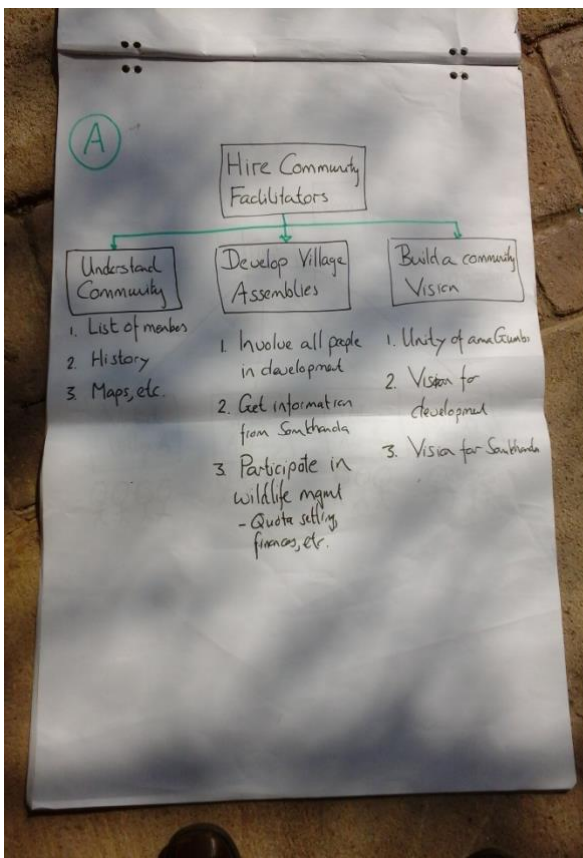 A
Hire Community
Facilitators
Understand
Community
1. List of members
2. History
3. Maps, etc.
Develop Village
Assemblies
1. Involve all people
in development
2. Get information
from Somkhanda
3. Participate in
wildlife mgmt
- Quota setting,
finances, etc.
Build a community
Vision
1. Unity of amaGumbi
2. Vision for
development
3. Vision for Somkhanda